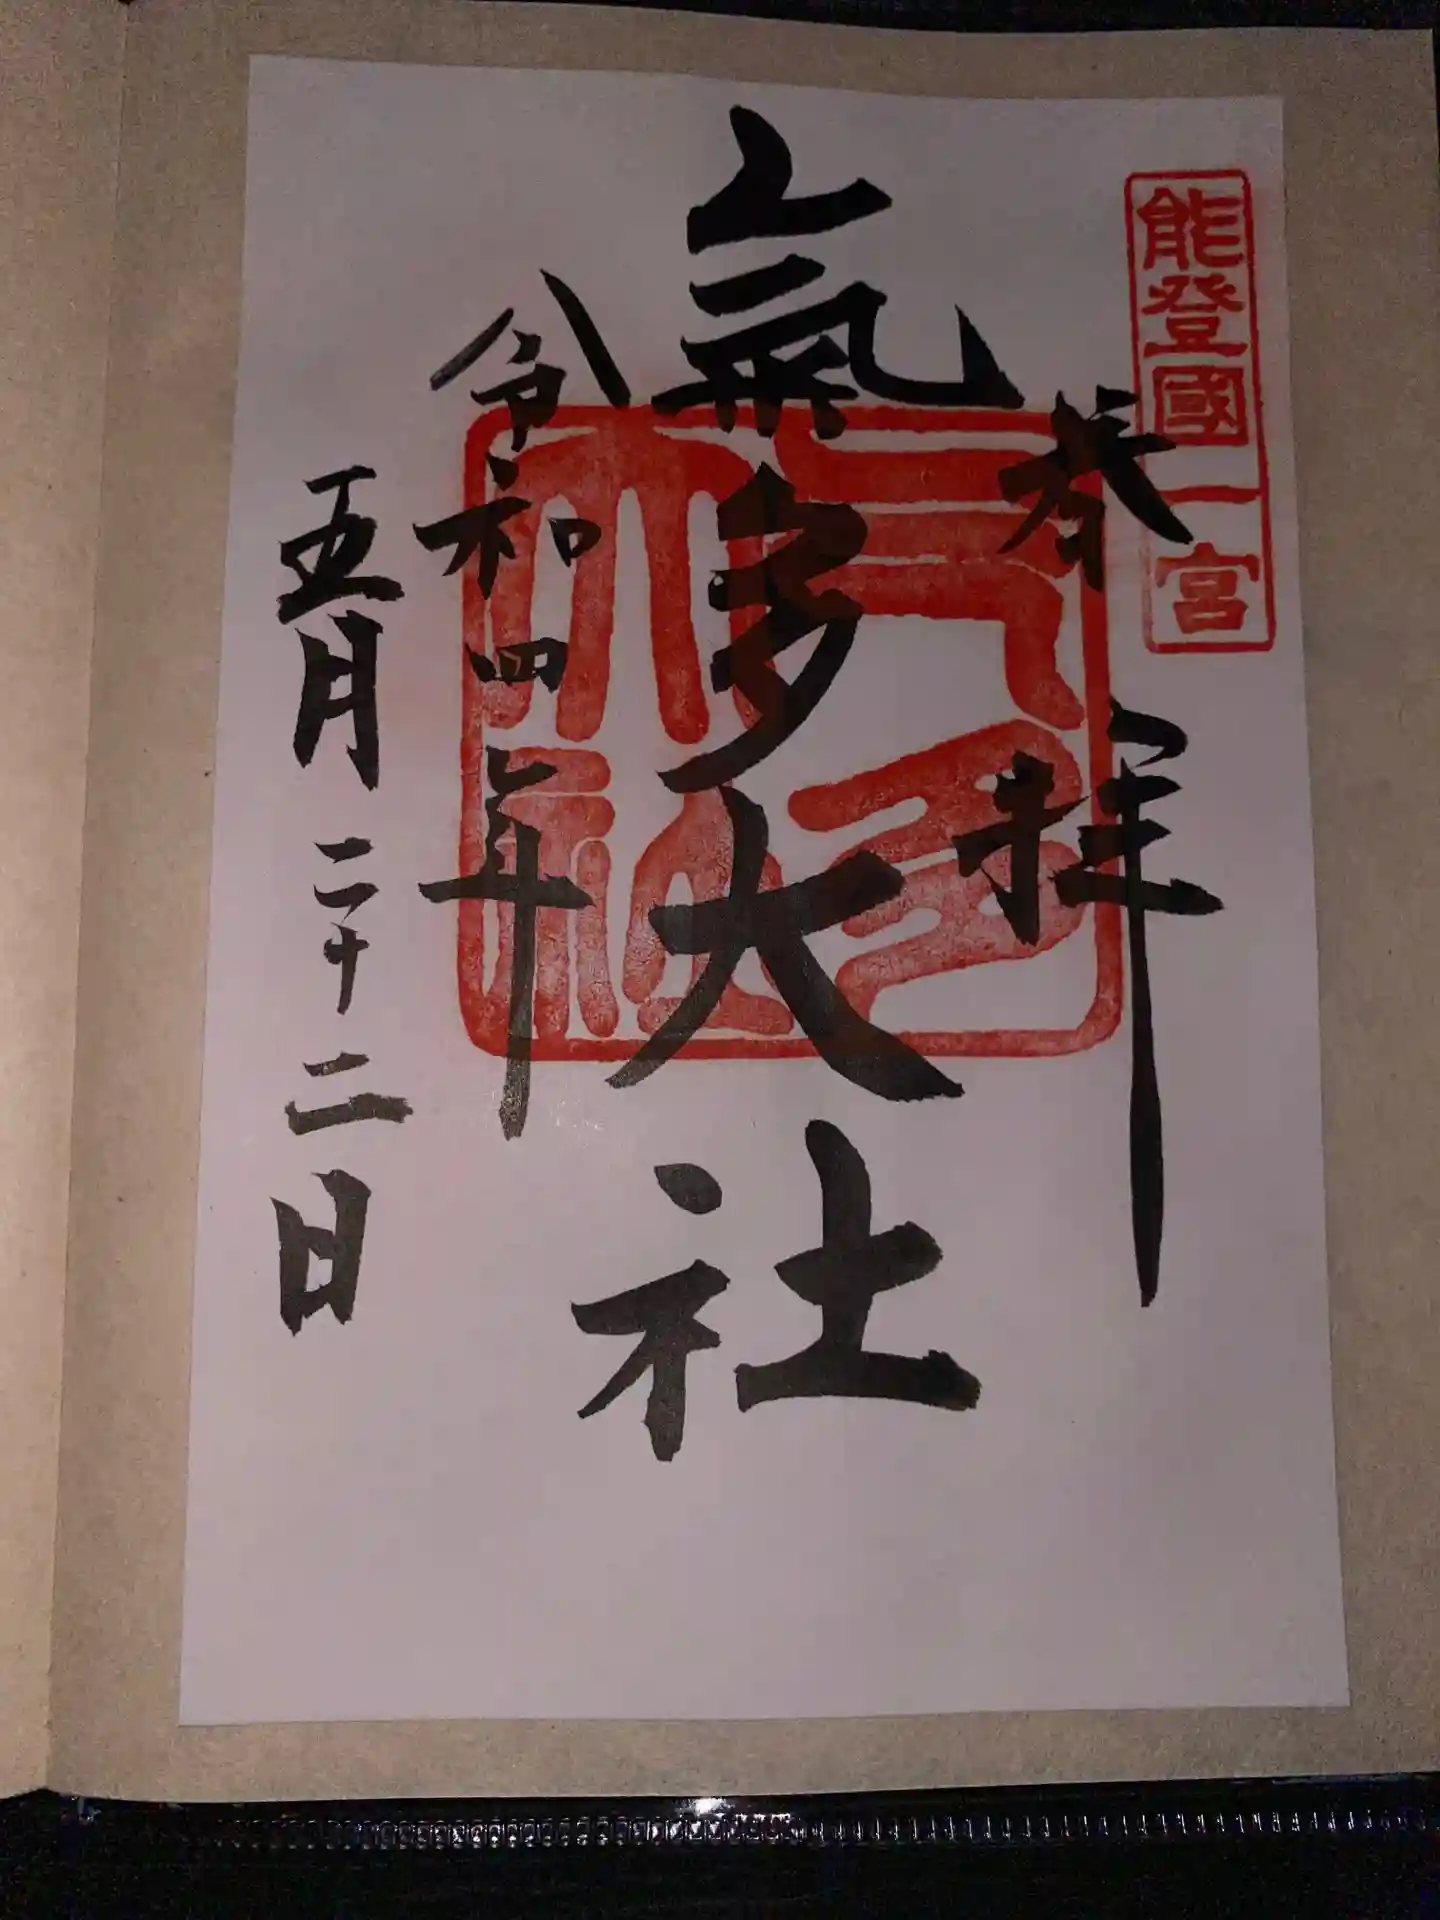 能登國一宮
奉拝
氣多大社
氣多大社
令和四年
五月二十二日